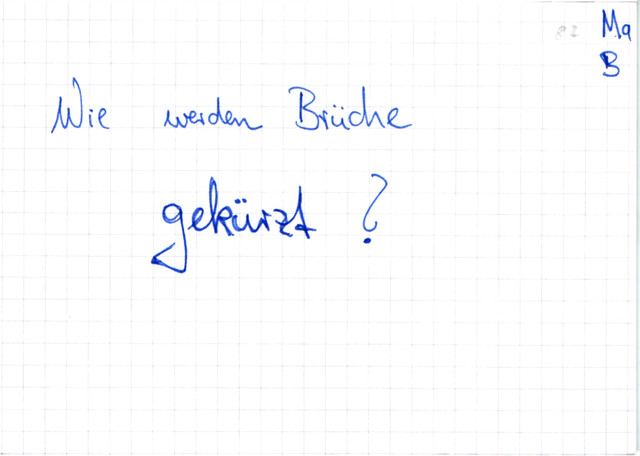 Ma
B
Wie werden Brüche
gekürzt ?